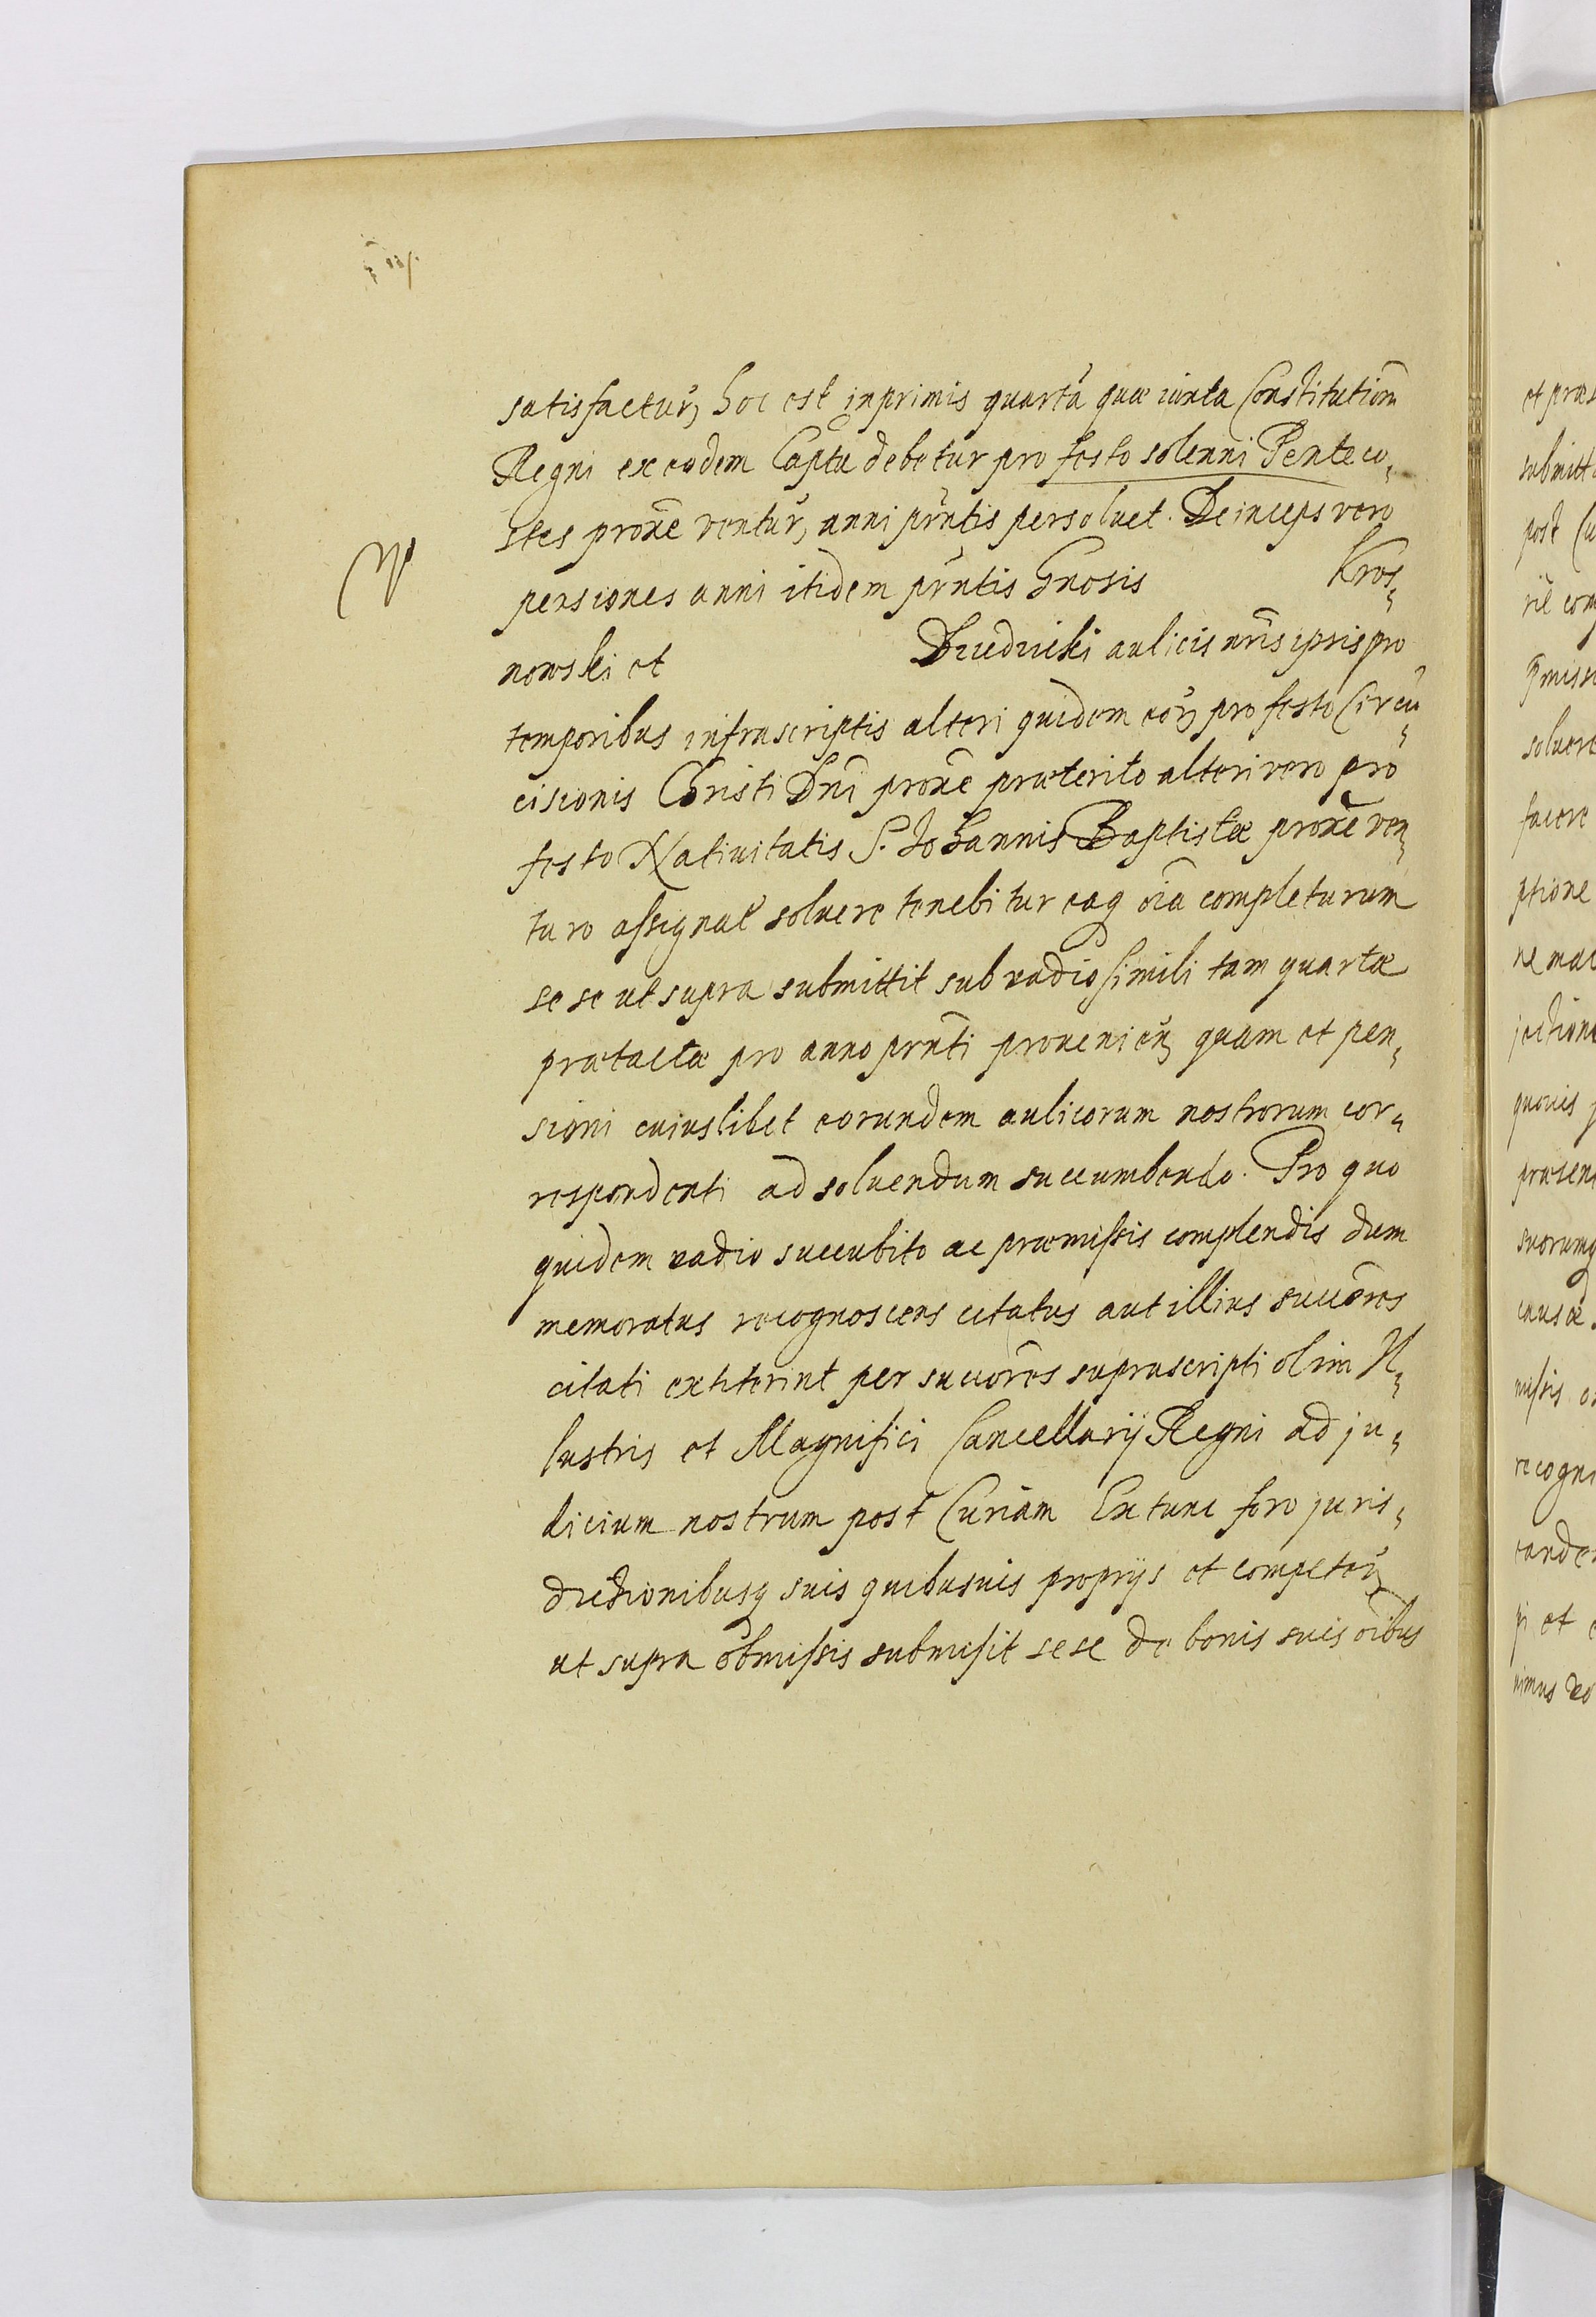 satisfactur, hoc est inprimis quartã quæ iuxta Constitutiõm
Regni ex eodem Captu debetur pro festo solenni Penteco„
stes proxẽ ventur, anni prñtis persoluet. Deinceps vero
pensiones anni itidem prñtis Gnosis Kros„
nowski et Drudnicki aulicis nr̃is ipsis pro
temporibus infrascriptis alteri quidem eor, pro festo Circũ„
cisionis Christi Dñi proxẽ præterito alteri vero pro
festo Natiuitatis S. Johannis Baptistæ proxẽ ven„
turo assignat soluere tenebitur eaq õia completurum
se se ut supra submittit sub vadio simili tam quartæ
prætactæ pro anno prñti prouenieñ, quam et pen„
sioni cuiuslibet eorundem aulicorum nostrorum cor„
respondenti ad soluendum succumbendo. Pro quo
quidem vadio succubito ac præmissis complendis dum
memoratus recognoscens citatus aut illius succõres
citati extiterint per succõres suprascripti olim Il„
lustris et Magnifici Cancellarij Regni ad ju„
dicium nostrum post Curiam Ex tunc foro juris„
dictionibusq suis quibusuis proprijs et competeñ,
ut supra obmissis submisit sese de bonis suis oĩbus